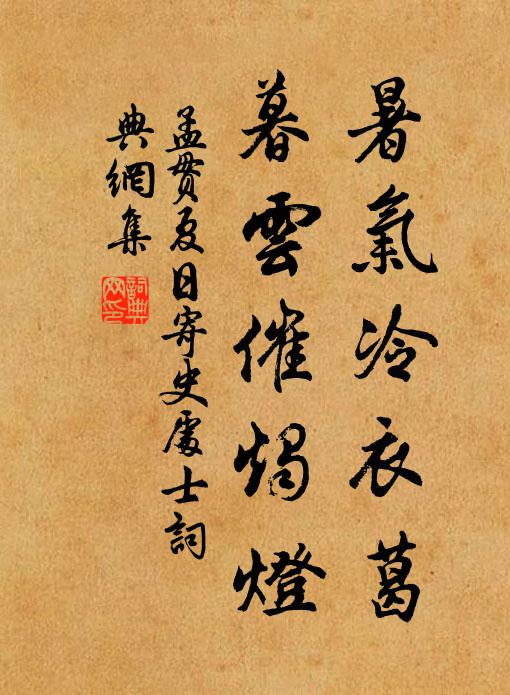 暑氣冷衣葛
暮雲催燭燈
孟貫夏日寄史處士詞
典網集
詞典網印